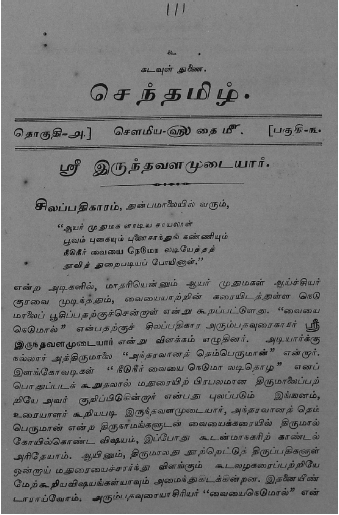 கடவுள் துணை.
செந்தமிழ்.
தொகுதி-அ.] சௌமிய௵ தை௴. [பகுதி-௩.
ஸ்ரீ இருந்தவளமுடையார்.
சிலப்பதிகாரம், அன்பமாலையில் வரும்,
"ஆயர் முதுமக ளாடிய சாயலாள்
பூவும் புகையும் புனைசாந்துங் கண்ணியும்
நீடுநீர் வையை நெடுமா லடியேத்தத்
தூவித் துறைபடியப் போயினாள்."
என்ற அடிகளில், மாதரியென்னும் ஆயர் முதுமகள் ஆய்ச்சியர்
குரவை முடிந்ததும், வையையாற்றின் கரையிடத்துள்ள நெடு
மாலைப் பூசிப்பதற்குச்சென்றாள் என்று கூறப்பட்டுளது. "வையை
நெடுமால்" என்பதற்குச் சிலப்பதிகார அரும்பதவுரைகாரர் ஸ்ரீ
இருந்தவளமுடையார் என்று விளக்கம் எழுதினர். அடியார்க்கு
நல்லார் அத்திருமாலை "அந்தரவானத் தெம்பெருமான்" என்றர்.
இளங்கோவடிகள் "நீடுநீர் வையை நெடுமா லடிதொழ" எனப்
பொதுப்படக் கூறுதலால் மதுரையிற் பிரபலமான திருமாலைப்பற்
றியே அவர் குறிப்பிடுகின்றார் என்பது புலப்படும். இங்ஙனம்,
உரையாளர் கூறியபடி இருந்தவளமுடையார், அந்தரவானத் தெம்
பெருமான் என்ற திருநாமங்களுடன் வையைக்கரையில் திருமால்
கோயில்கொண்ட விஷயம், இப்போது கூடன்மாநகரிற் காண்டல்
அரிதேயாம். ஆயினும், திருமாலது நூற்றெட்டுத் திருப்பதிகளுள்
ஒன்றாய் மதுரையைச்சார்ந்து விளங்கும் கூடலழகரைப்பற்றியே
மேற்கூறியவிஷயங்கள்யாவும் அமைந்துகடக்கின்றன. இதனையீண்
டாராய்வோம், அரும்பதவுரையாசிரியர் "வையைநெடுமால்" என்